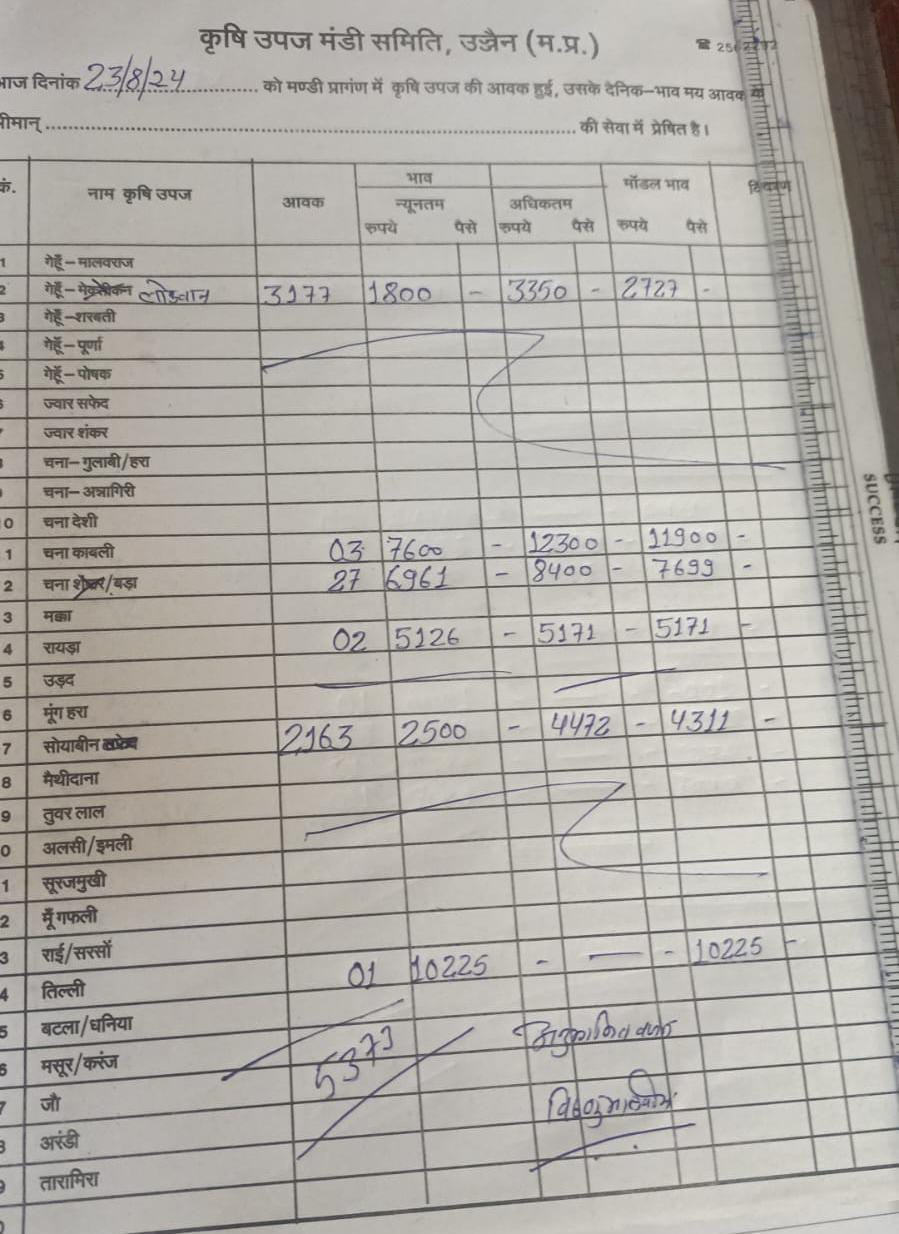 कृषि उपज मंडी समिति, उज्जैन (म.प्र.)
☎ 25
आज दिनांक 23/8/24 को मण्डी प्रागंण में कृषि उपज की आवक हुई, उसके दैनिक-भाव मय आवक के
श्रीमान् की सेवा में प्रेषित है।
कं. नाम कृषि उपज आवक भाव मॉडल भाव विवरण
न्यूनतम अधिकतम
रुपये पैसे रुपये पैसे रुपये पैसे
1 गेहूँ-मालवराज
2 गेहूँ-मेक्सीकन लोकवान 3177 1800 - 3350 - 2727 -
3 गेहूँ-शरबती
4 गेहूँ-पूर्णा
5 गेहूँ-पोषक
6 ज्वार सफेद
ज्वार शंकर
चना-गुलाबी/हरा
चना-अन्नागिरी
0 चना देशी
1 चना काबली 03 7600 - 12300 - 11900 -
2 चना /बड़ा 27 6961 - 8400 - 7699 -
3 मक्का
4 रायड़ा 02 5126 - 5171 - 5171 -
5 उड़द
6 मूंग हरा
7 सोयाबीन 2163 2500 - 4472 - 4311 -
8 मैथीदाना
9 तुवर लाल
0 अलसी/इमली
1 सूरजमुखी
2 मूँगफली
3 राई/सरसों
4 तिल्ली 01 10225 - - 10225 -
5 बटला/धनिया
6 मसूर/करंज 5373
7 जौ
8 अरंडी
9 तारामिरा
SUCCESS